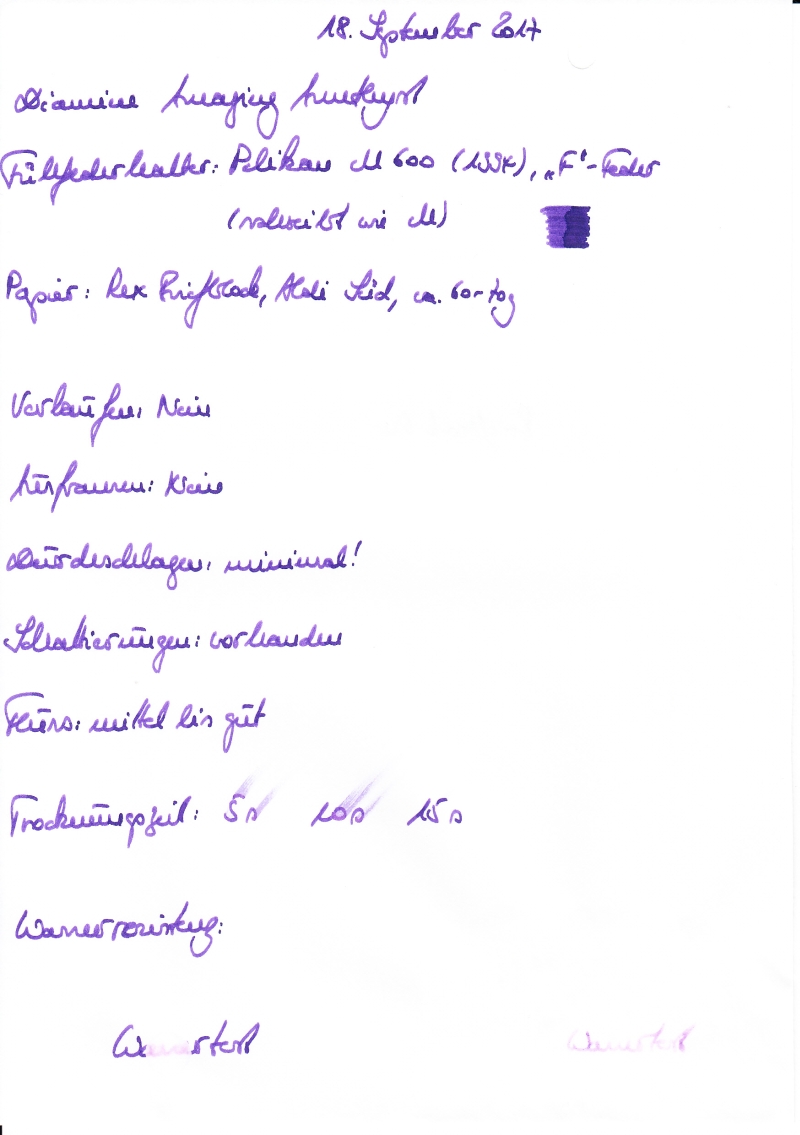 18. September 2017
Diamine Amazing Amethyst
Füllfederhalter: Pelikan M 600 (1997), „F“-Feder
(schreibt wie M)
Papier: Rex Briefblock, Aldi Süd, ca. 60-70g
Verlaufen: Nein
Ausfransen: Nein
Durchschlagen: minimal!
Schattierungen: vorhanden
Fluss: mittel bis gut
Trocknungszeit: 5 s 10 s 15 s
Wasserresistenz:
Wassertest Wassertest